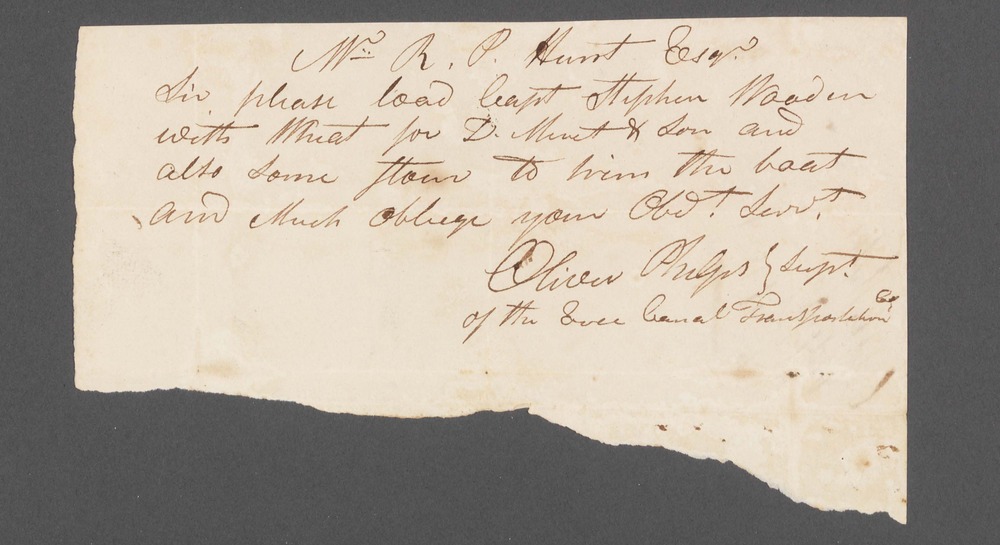 Mr. R. P. Hunt Esqr.
Sir please load Capt Stephen Wooden
with Wheat for D. Minet & Son and
also some flour to trim the boat
and Much obliege your Obdt. Servt.
Oliver Phelps } Supt.
of the Eree Canal Transportation Co